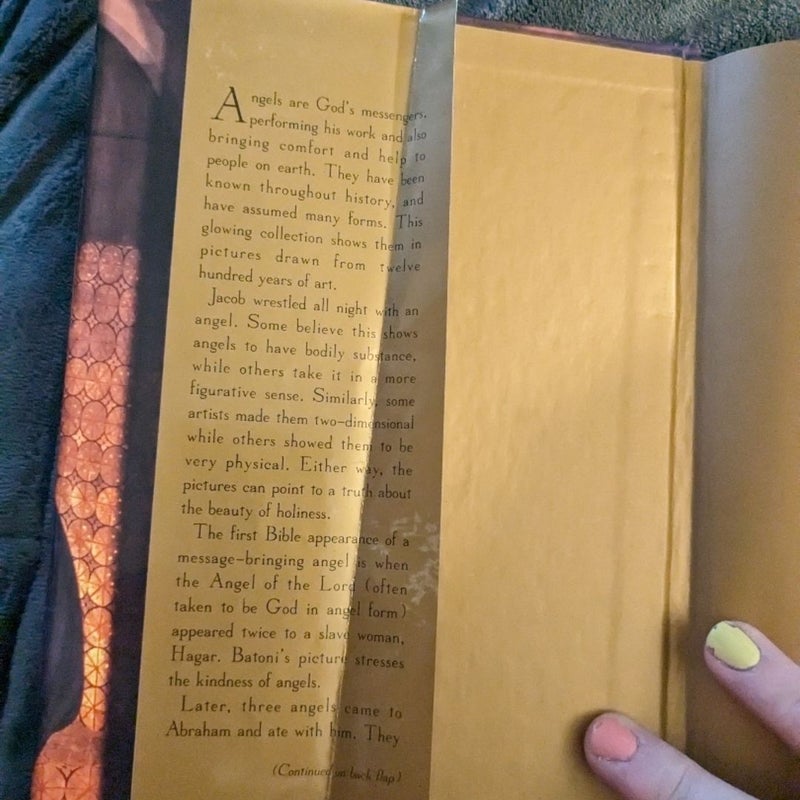 Angels are God's messengers,
performing his work and also
bringing comfort and help to
people on earth. They have been
known throughout history, and
have assumed many forms. This
glowing collection shows them in
pictures drawn from twelve
hundred years of art.
Jacob wrestled all night with an
angel. Some believe this shows
angels to have bodily substance,
while others take it in a more
figurative sense. Similarly, some
artists made them two-dimensional
while others showed them to be
very physical. Either way, the
pictures can point to a truth about
the beauty of holiness.
The first Bible appearance of a
message-bringing angel is when
the Angel of the Lord (often
taken to be God in angel form)
appeared twice to a slave woman,
Hagar. Batoni's picture stresses
the kindness of angels.
Later, three angels came to
Abraham and ate with him. They
(Continued on back flap)